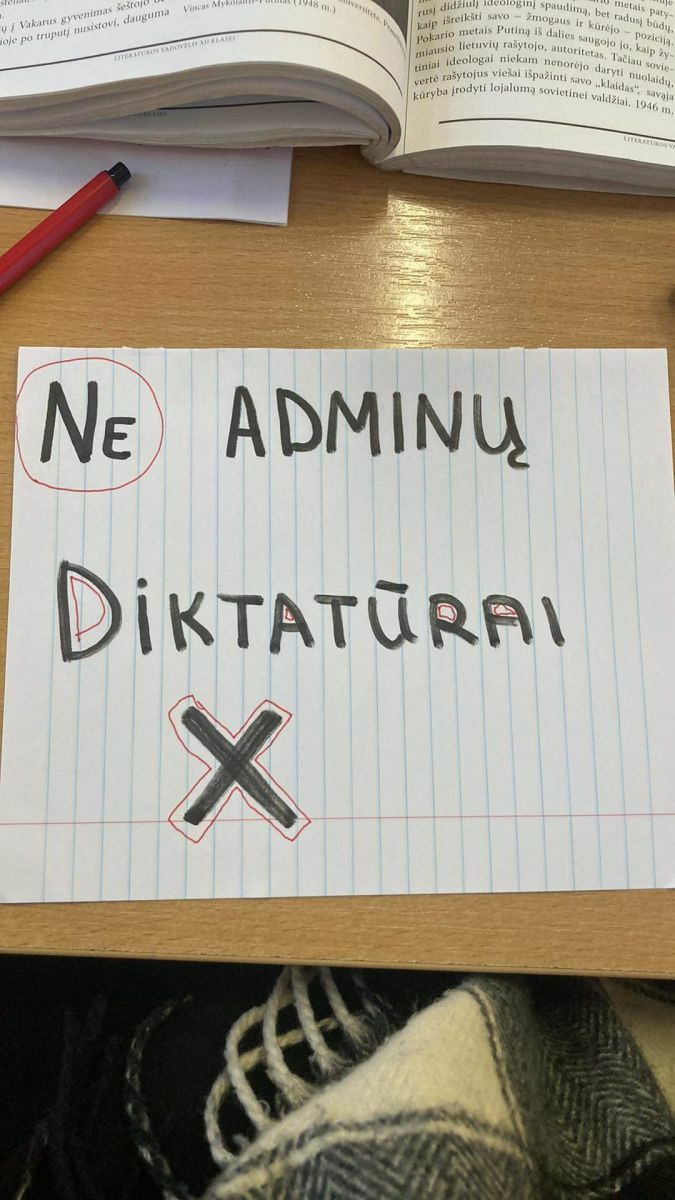 ių į Vakarus gyvenimas šeštojo de
ioje po truputį nusistovi, dauguma
Vincas Mykolaitis-Putinas (1948 m.)
universitete,
LITERATŪROS VADOVĖLIS XII KLASEI
rusį didžiulį ideologinį spaudimą, bet radusį būdų,
kaip išreikšti savo – žmogaus ir kūrėjo – poziciją.
Pokario metais Putiną iš dalies saugojo jo, kaip žy-
miausio lietuvių rašytojo, autoritetas. Tačiau sovie-
tiniai ideologai niekam nenorėjo daryti nuolaidų,
vertė rašytojus viešai išpažinti savo „klaidas“, savąja
kūryba įrodyti lojalumą sovietinei valdžiai. 1946 m.
LITERATŪROS VA
NE ADMINŲ
DIKTATŪRAI
X